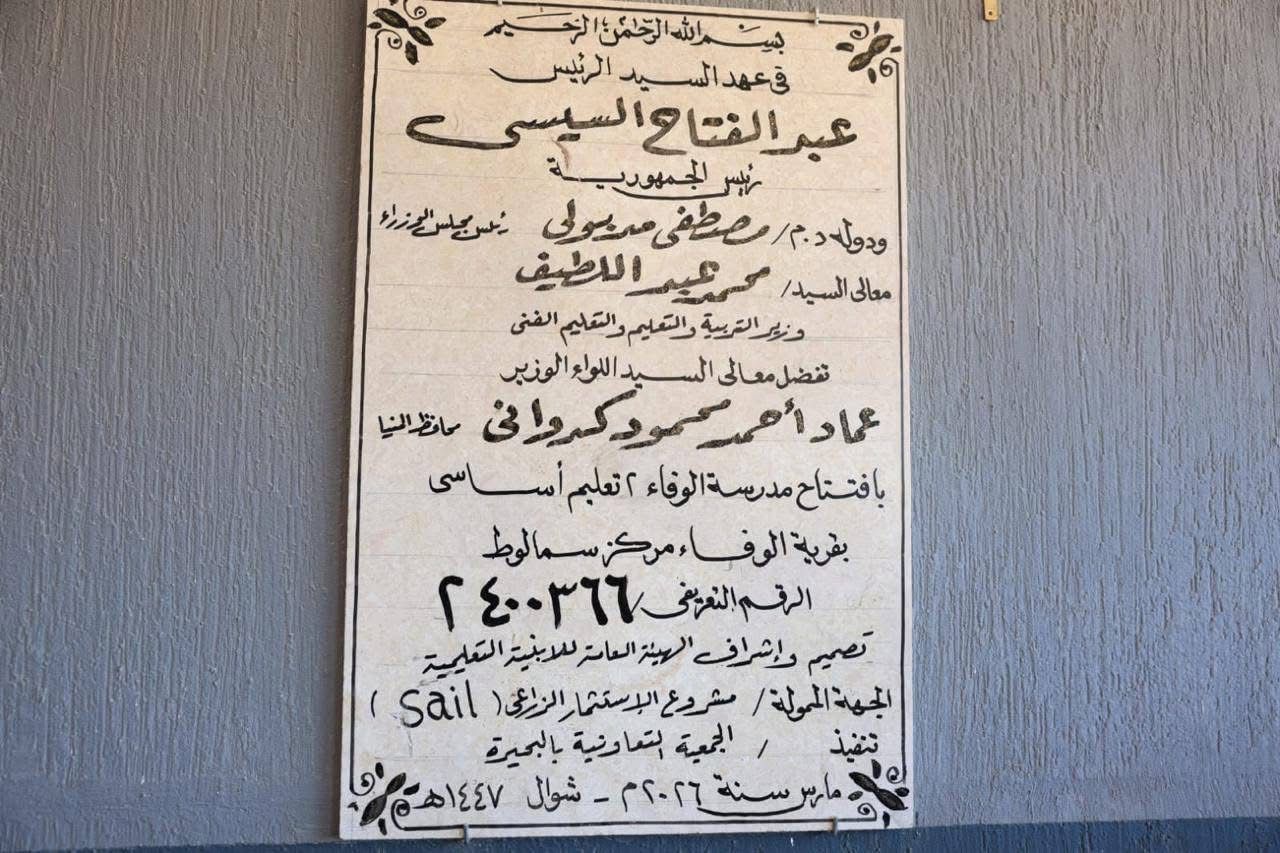 بسم الله الرحمن الرحيم
فى عهد السيد الرئيس
عبد الفتاح السيسى
رئيس الجمهورية
ودولة د.م/ مصطفى مدبولى رئيس مجلس الوزراء
معالى السيد/ محمد عبد اللطيف
وزير التربية والتعليم والتعليم الفنى
تفضل معالى السيد اللواء الوزير
عماد أحمد محمود كدوانى محافظ المنيا
بافتتاح مدرسة الوفاء ٢ تعليم أساسى
بقرية الوفاء مركز سمالوط
الرقم التعريفى/ ٢٤٠٠٣٦٦
تصميم وإشراف الهيئة العامة للابنية التعليمية
الجهة الممولة/ مشروع الاستثمار الزراعى (Sail)
تنفيذ / الجمعية التعاونية بالبحيرة
مارس سنة ٢٠٢٦م - شوال ١٤٤٧هـ